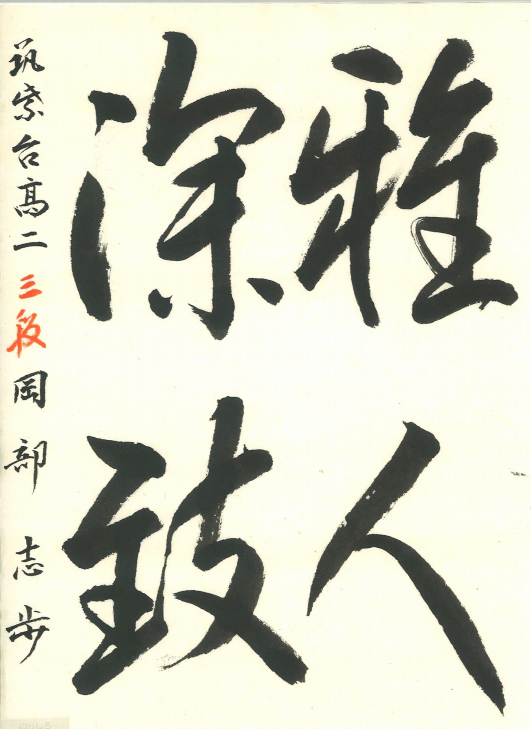 雅人
深致
筑紫台高二 三段 岡部志歩